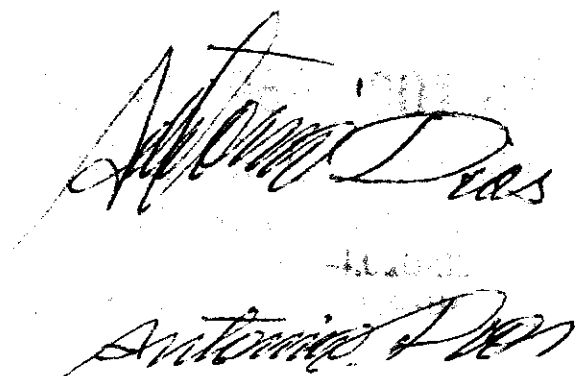 Antonio Dias
Antonio Dias